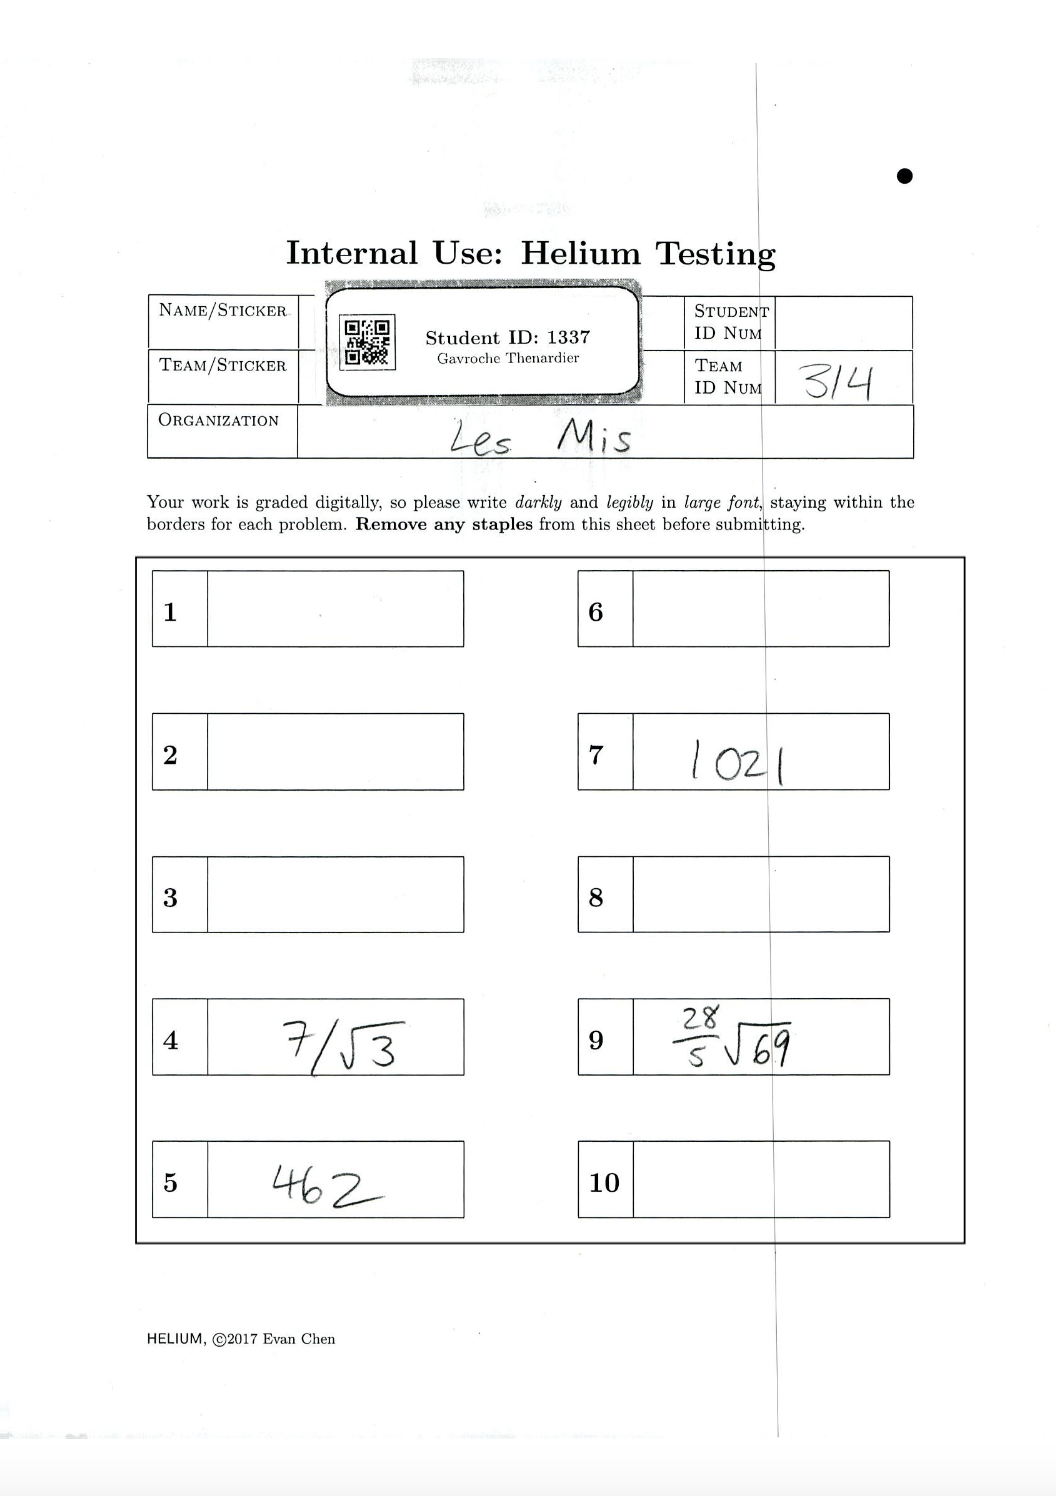 Internal Use: Helium Testing
NAME/STICKER
Student ID: 1337
Gavroche Thenardier
STUDENT
ID NUM
TEAM/STICKER
TEAM
ID NUM
314
ORGANIZATION
Les Mis
Your work is graded digitally, so please write darkly and legibly in large font, staying within the
borders for each problem. Remove any staples from this sheet before submitting.
1
6
2
7
1021
3
8
4
7/√3
9
28/5 √69
5
462
10
HELIUM, ©2017 Evan Chen